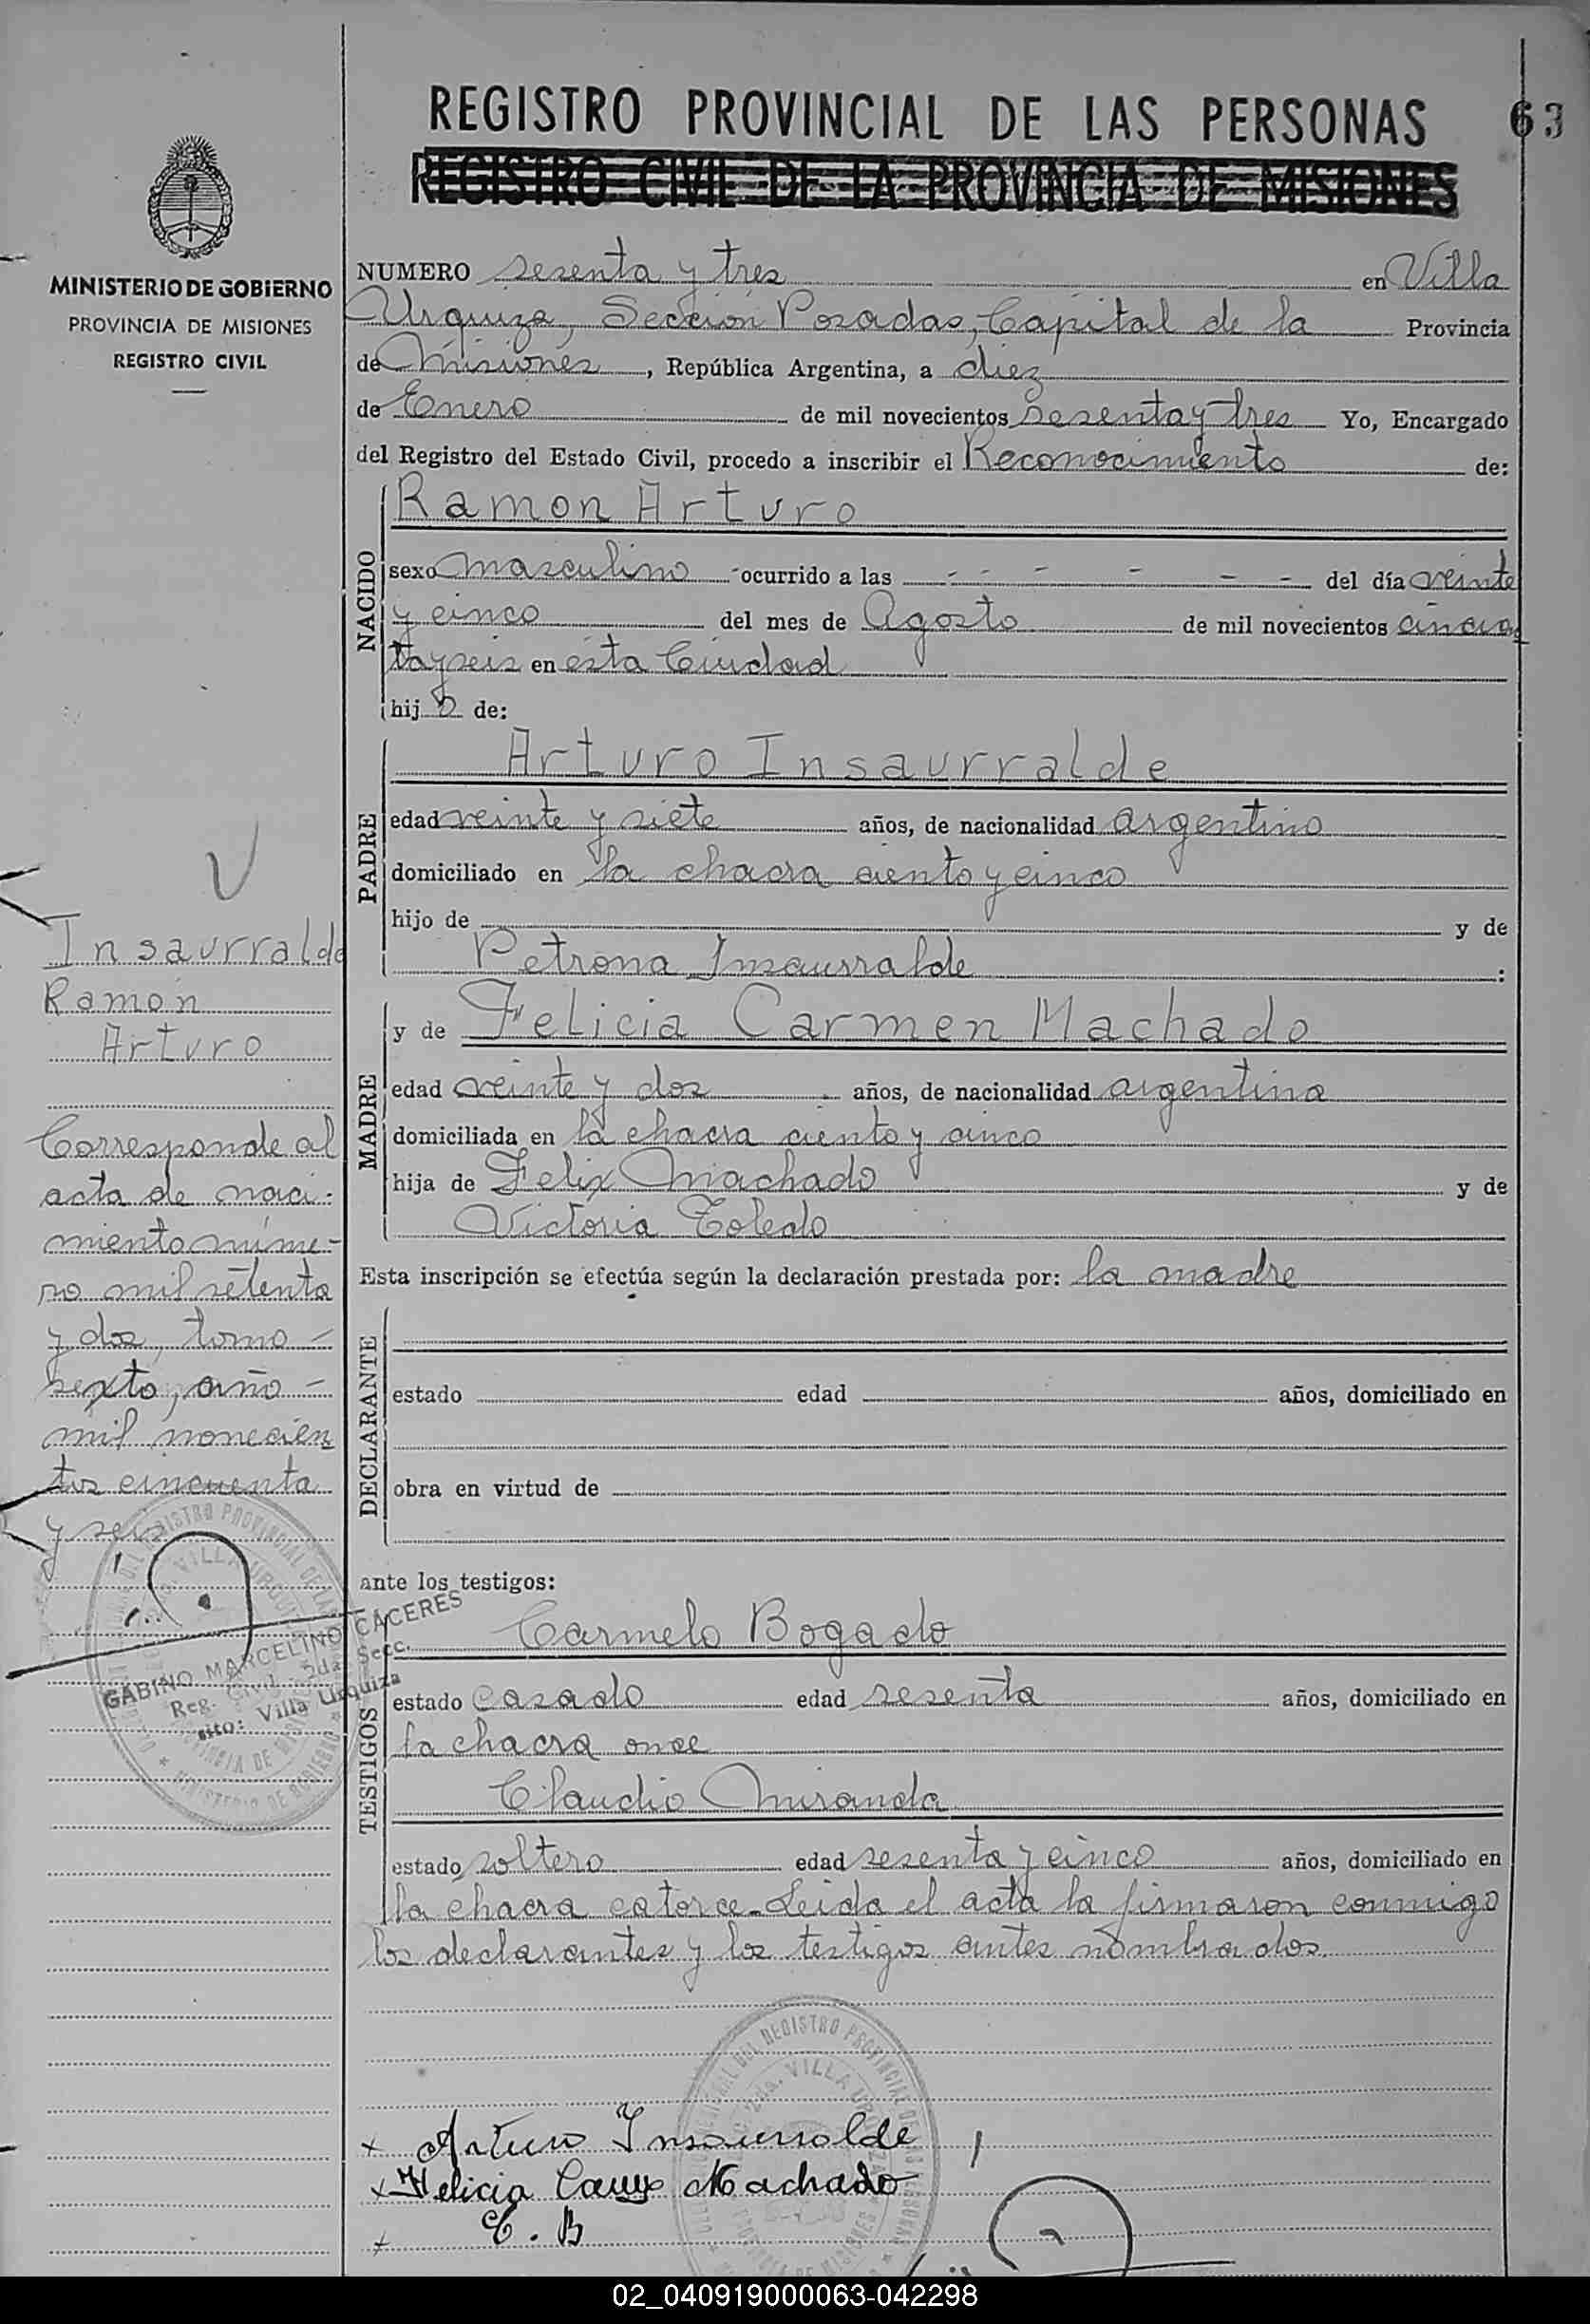 REGISTRO PROVINCIAL DE LAS PERSONAS 63
REGISTRO CIVIL DE LA PROVINCIA DE MISIONES
MINISTERIO DE GOBIERNO
PROVINCIA DE MISIONES
REGISTRO CIVIL
NUMERO sesenta y tres en Villa
Urquiza, Sección Posadas, Capital de la Provincia
de Misiones, República Argentina, a diez
de Enero de mil novecientos sesenta y tres Yo, Encargado
del Registro del Estado Civil, procedo a inscribir el Reconocimiento de:
NACIDO
Ramon Arturo
sexo masculino ocurrido a las - - - - - - del día veinte
y cinco del mes de Agosto de mil novecientos cincuen
ta y seis en esta Ciudad
hijo de:
PADRE
Arturo Insaurralde
edad veinte y siete años, de nacionalidad argentino
domiciliado en la chacra ciento y cinco
hijo de y de
Petrona Insaurralde :
MADRE
y de Felicia Carmen Machado
edad veinte y dos años, de nacionalidad argentina
domiciliada en la chacra ciento y cinco
hija de Felix Machado y de
Victoria Toledo
Esta inscripción se efectúa según la declaración prestada por: la madre
DECLARANTE
estado edad años, domiciliado en
obra en virtud de
ante los testigos:
TESTIGOS
Carmelo Bogado
estado casado edad sesenta años, domiciliado en
la chacra once
Claudio Miranda
estado soltero edad sesenta y cinco años, domiciliado en
la chacra catorce. Leida el acta la firmaron conmigo
los declarantes y los testigos antes nombrados.
x Arturo Insaurralde
x Felicia Machado
x C. B
Insaurralde
Ramon
Arturo
Corresponde al
acta de naci-
miento núme-
ro mil setenta
y dos, tomo -
sexto, año -
mil novecien
tos cincuenta
y seis
GABINO MARCELINO CACERES
Reg. Civil 2da. Secc.
sito: Villa Urquiza
02_040919000063-042298